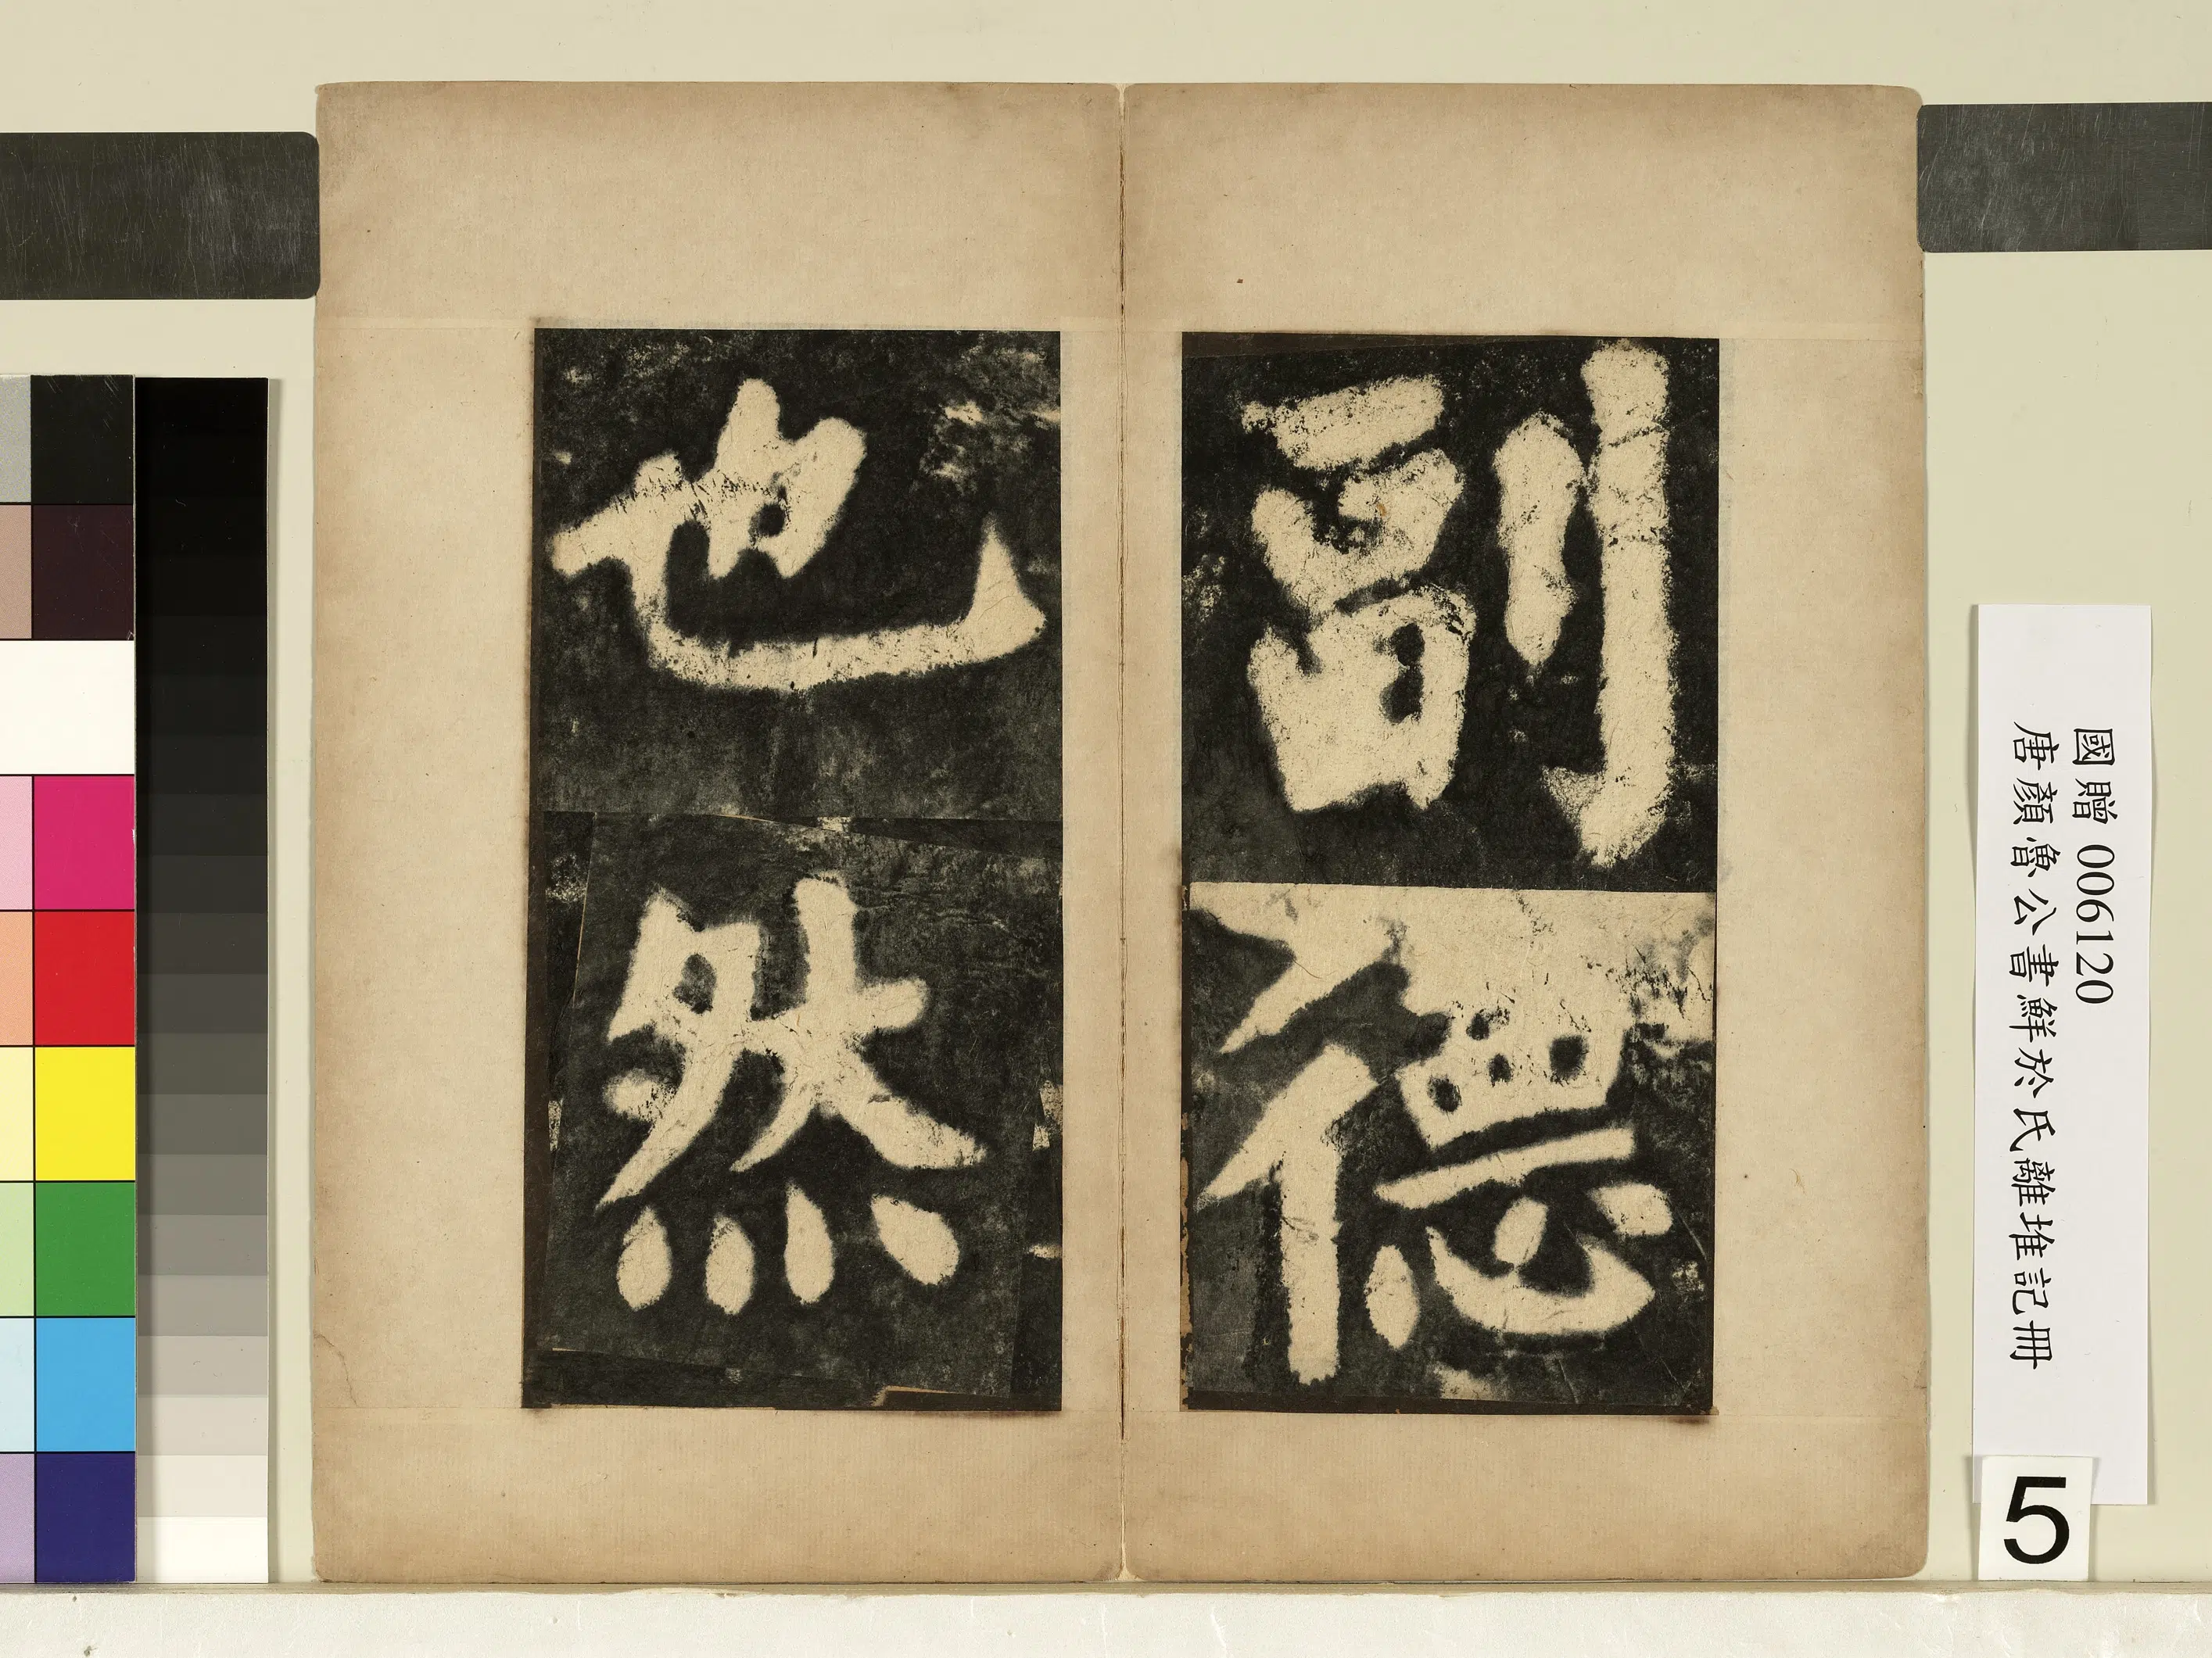 副德
也然
國贈 006120
唐顏魯公書鮮於氏離堆記冊
5